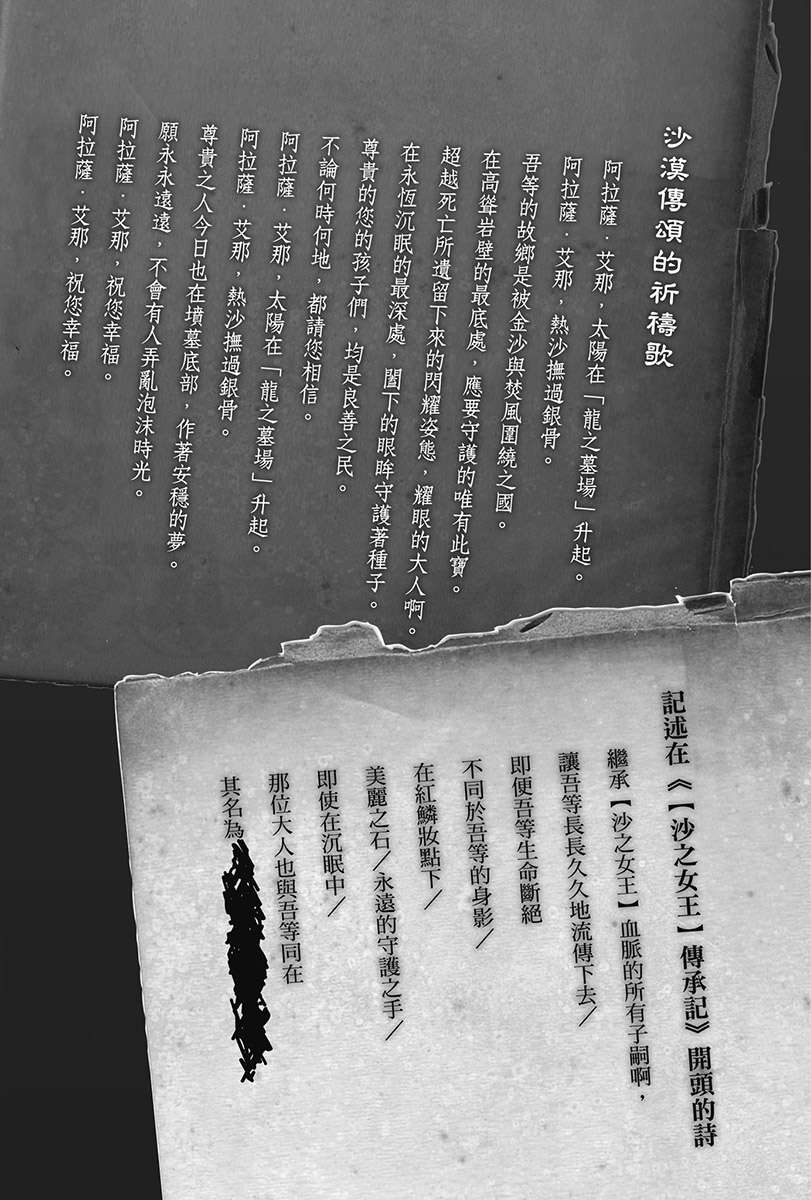 沙漠傳頌的祈禱歌
阿拉薩．艾那，太陽在「龍之墓場」升起。
阿拉薩．艾那，熱沙撫過銀骨。
吾等的故鄉是被金沙與焚風圍繞之國。
在高聳岩壁的最底處，應要守護的唯有此寶。
超越死亡所遺留下來的閃耀姿態，耀眼的大人啊。
在永恆沉眠的最深處，闔下的眼眸守護著種子。
尊貴的您的孩子們，均是良善之民。
不論何時何地，都請您相信。
阿拉薩．艾那，太陽在「龍之墓場」升起。
阿拉薩．艾那，熱沙撫過銀骨。
尊貴之人今日也在墳墓底部，作著安穩的夢。
願永永遠遠，不會有人弄亂泡沫時光。
阿拉薩．艾那，祝您幸福。
阿拉薩．艾那，祝您幸福。
記述在《【沙之女王】傳承記》開頭的詩
繼承【沙之女王】血脈的所有子嗣啊，
讓吾等長長久久地流傳下去／
即便吾等生命斷絕
不同於吾等的身影／
在紅鱗妝點下／
美麗之石／永遠的守護之手／
即使在沉眠中／
那位大人也與吾等同在
其名為